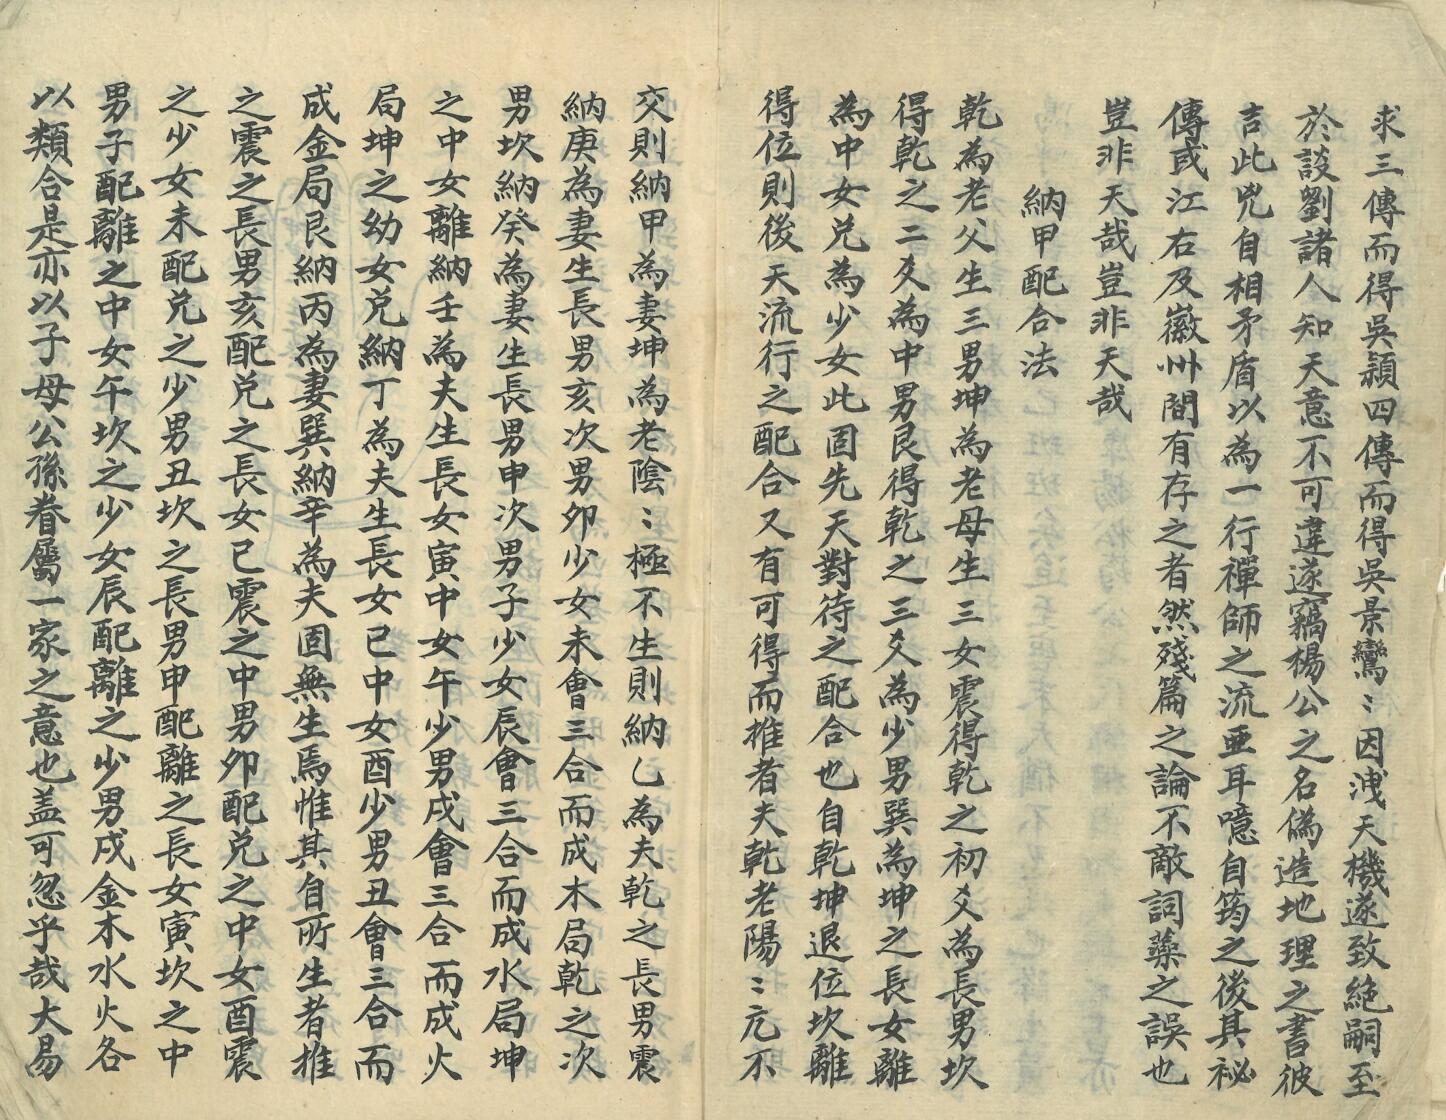 求三傳而得吳頴四傳而得吳景鸞〻因洩天機遂致絶嗣至
於談劉諸人知天意不可違遂竊楊公之名偽造地理之書彼
吉此兇自相矛盾以為一行禪師之流亜耳噫自筠之後其祕
傳或江右及嶶州間有存之者然殘篇之論不敵詞藥之誤也
豈非天哉豈非天哉
納甲配合法
乾為老父生三男坤為老母生三女震得乾之初爻為長男坎
得乾之二爻為中男艮得乾之三爻為少男巽為坤之長女離
為中女兌為少女此固先天對待之配合也自乾坤退位坎離
得位則後天流行之配合又有可得而推者夫乾老陽〻亢不
交則納甲為妻坤為老陰〻極不生則納乙為夫乾之長男震
納庚為妻生長男亥次男卯少女未會三合而成木局乾之次
男坎納癸為妻生長男申次男子少女辰會三合而成水局坤
之中女離納壬為夫生長女寅中女午少男戌會三合而成火
局坤之幼女兌納丁為夫生長女巳中女酉少男丑會三合而
成金局艮納丙為妻巽納辛為夫固無生焉惟其自所生者推
之震之長男亥配兌之長女巳震之中男卯配兌之中女酉震
之少女未配兌之少男丑坎之長男申配離之長女寅坎之中
男子配離之中女午坎之少女辰配離之少男戌金木水火各
以類合是亦以子母公孫眷屬一家之意也盖可忽乎哉大易